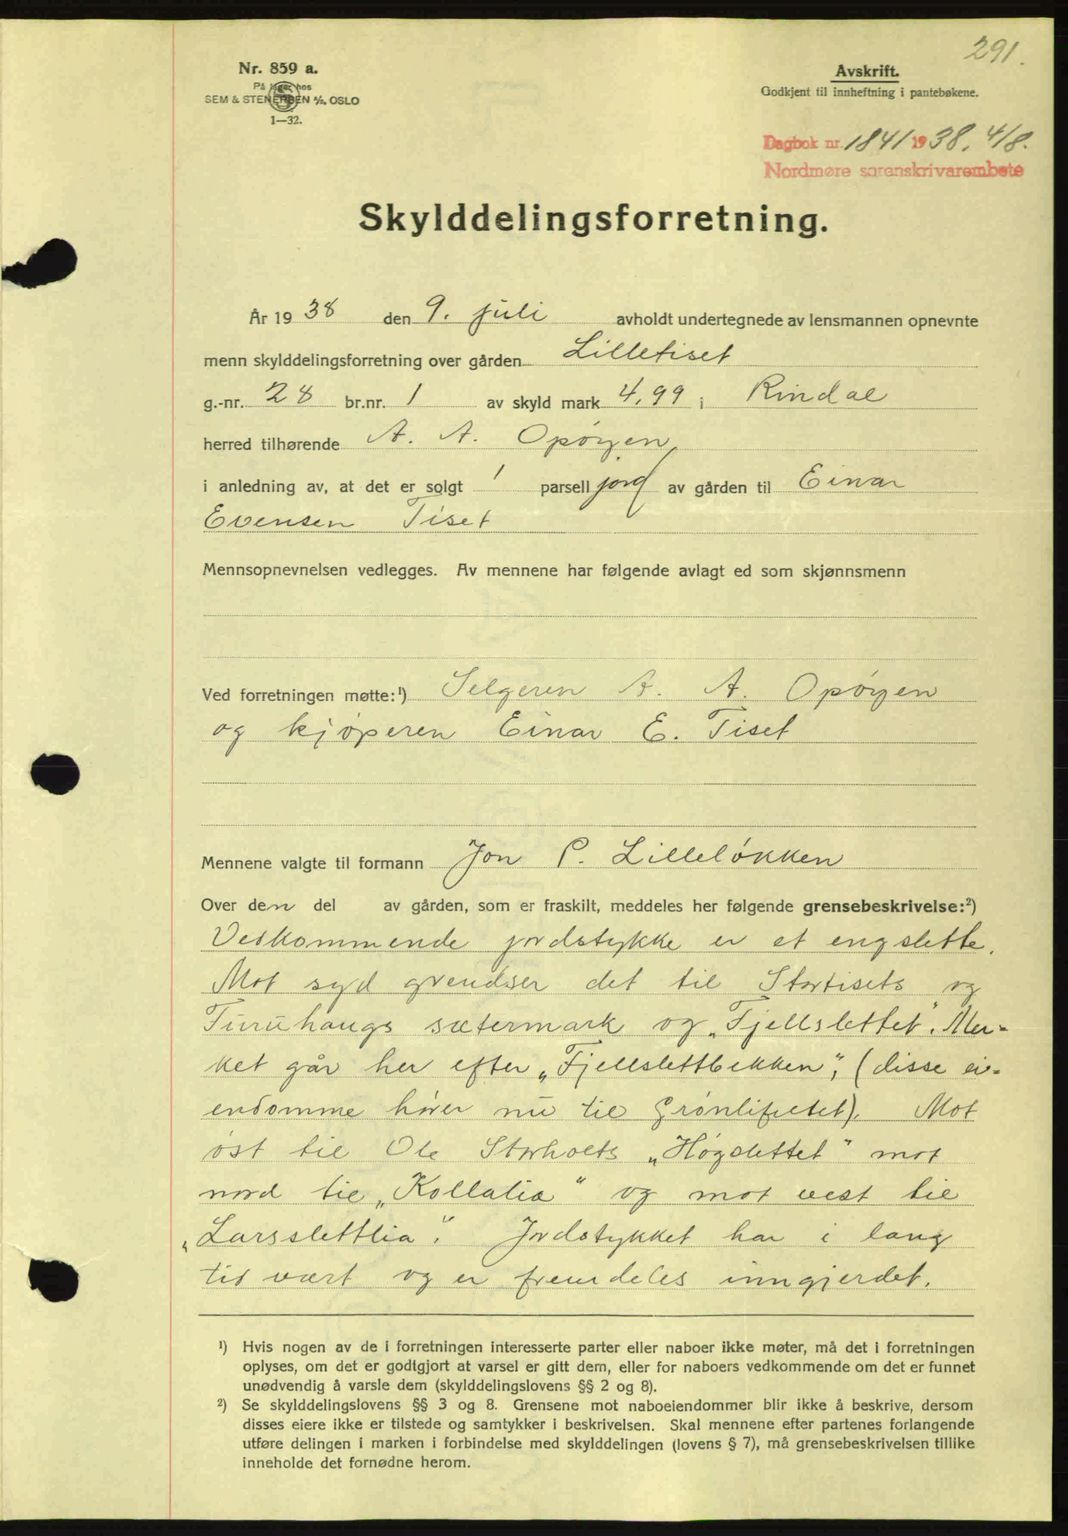 291.
Nr. 859 a.
På lager hos
SEM & STENERSEN A/S. OSLO
1—32.
Avskrift.
Godkjent til innheftning i pantebøkene.
Dagbok nr. 1841 1938. 4/8.
Nordmøre sorenskrivarembete
Skylddelingsforretning.
År 1938 den 9. juli avholdt undertegnede av lensmannen opnevnte
menn skylddelingsforretning over gården Lilletiset
g.-nr. 28 br.nr. 1 av skyld mark 4,99 i Rindal
herred tilhørende A. A. Opøyen
i anledning av, at det er solgt 1 parsell jord av gården til Einar
Evensen Tiset
Mennsopnevnelsen vedlegges. Av mennene har følgende avlagt ed som skjønnsmenn
Ved forretningen møtte:¹) Selgeren A. A. Opøyen
og kjøperen Einar E. Tiset
Mennene valgte til formann Jon P. Lilleløkken
Over den del av gården, som er fraskilt, meddeles her følgende grensebeskrivelse:²)
Vedkommende jordstykke er et engslette.
Mot syd grendser det til Stortisets og
Turuhaugs sætermark og „Fjellslettet". Mer-
ket går her efter „Fjellslettbekken", (disse ei-
endomme hører nu til Grønlifeltet). Mot
øst til Ole Storholts „Høgslettet" mot
nord til „Kollalia" og mot vest til
„Larsslettlia". Jordstykket har i lang
tid vært og er fremdeles inngjerdet.
¹) Hvis nogen av de i forretningen interesserte parter eller naboer ikke møter, må det i forretningen
oplyses, om det er godtgjort at varsel er gitt dem, eller for naboers vedkommende om det er funnet
unødvendig å varsle dem (skylddelingslovens §§ 2 og 8).
²) Se skylddelingslovens §§ 3 og 8. Grensene mot naboeiendommer blir ikke å beskrive, dersom
disses eiere ikke er tilstede og samtykker i beskrivelsen. Skal mennene efter partenes forlangende
utføre delingen i marken i forbindelse med skylddelingen (lovens § 7), må grensebeskrivelsen tillike
inneholde det fornødne herom.